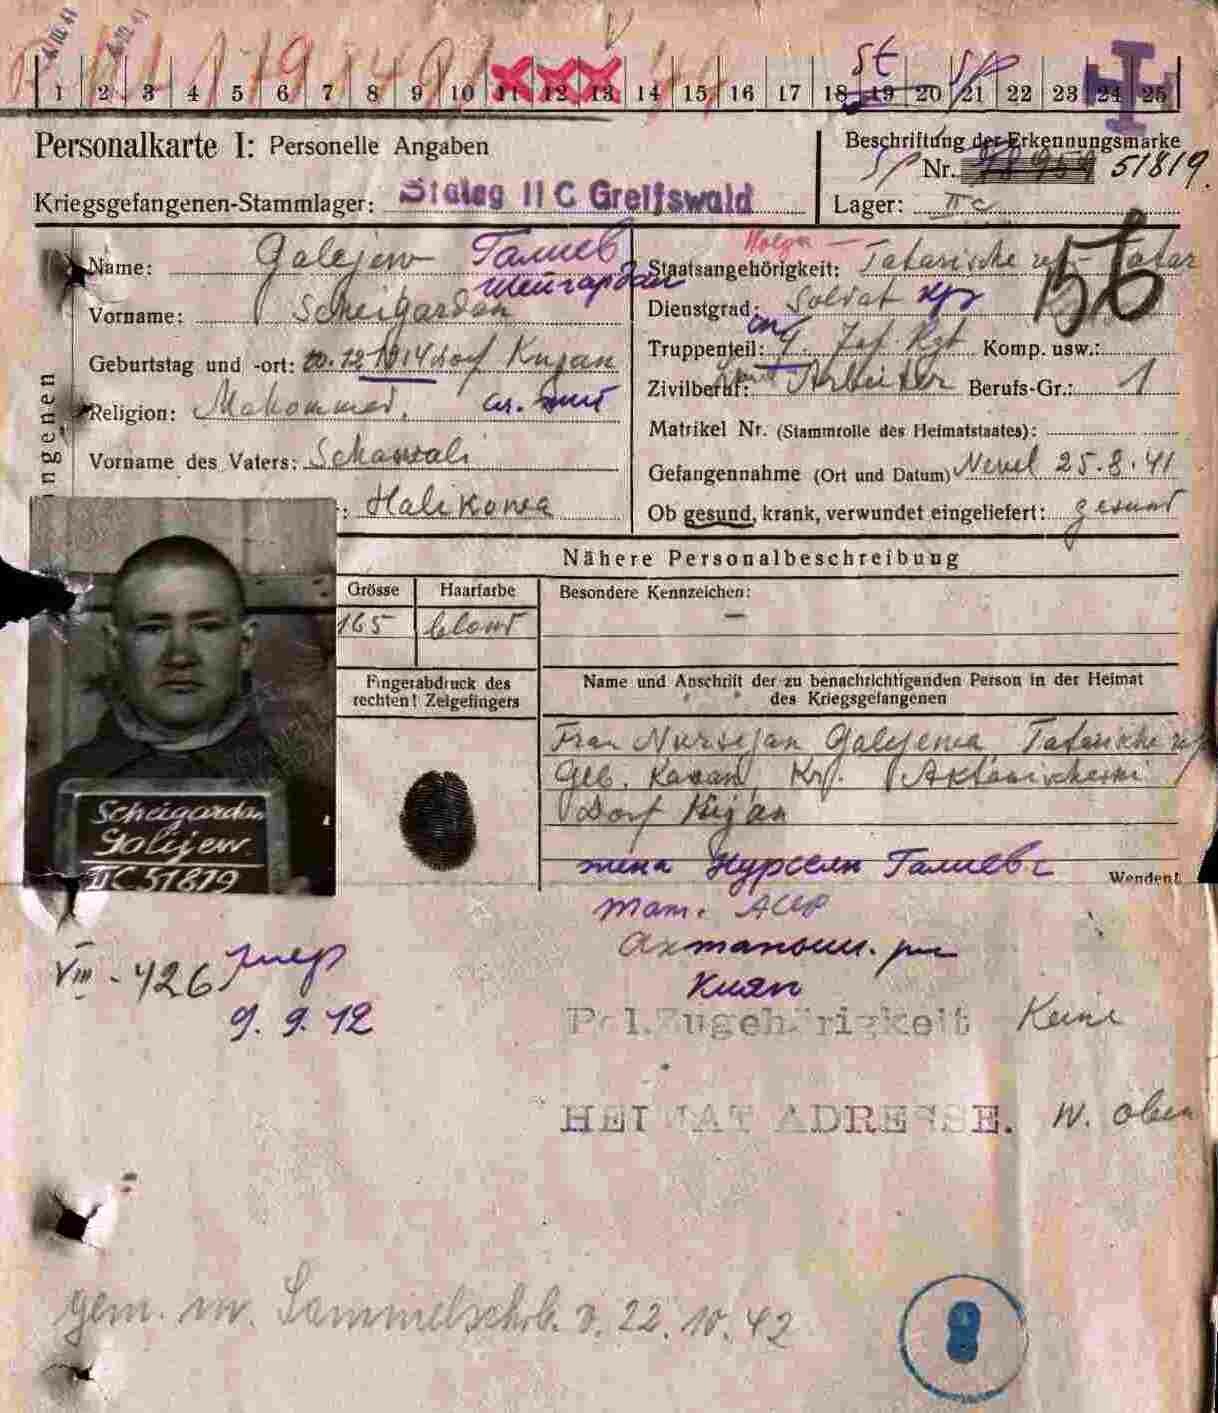 St Sp
1 2 3 4 5 6 7 8 9 10 11 12 13 14 15 16 17 18 19 20 21 22 23 24 25
Personalkarte I: Personelle Angaben
Beschriftung der Erkennungsmarke
Nr. 51819.
Kriegsgefangenen-Stammlager: Stalag II C Greifswald
Lager: II c
Name: Galejew Галиев
Шейгардан
Vorname: Scheigardan
Geburtstag und -ort: 20.12.1914 dorf Kujan
Religion: Mahommed.
Vorname des Vaters: Schawali
Halikowa
Staatsangehörigkeit: Tatarische rep. Tatar
Dienstgrad: Soldat кр
56
Truppenteil: 4. Inf Rgt Komp. usw.:
Zivilberuf: Arbeiter Berufs-Gr.: 1
Matrikel Nr. (Stammrolle des Heimatstaates):
Gefangennahme (Ort und Datum) Newel 25.8.41
Ob gesund, krank, verwundet eingeliefert: gesund
ngenen
Nähere Personalbeschreibung
Grösse Haarfarbe Besondere Kennzeichen:
165 blond —
Fingerabdruck des
rechten! Zeigefingers
Name und Anschrift der zu benachrichtigenden Person in der Heimat
des Kriegsgefangenen
Frau Nursejan Galejewa Tatarische rep
Geb. Kasan, Kr. Aktanischeski
Dorf Kijan
Scheigardan
Golijew
II C 51819
жена Нурсеян Галиев
Wenden!
тат. АССР
Актаныш. р-н
Киян
VIII - 426
умер
9.9.42
Pol. Zugehörigkeit Keine
HEIMAT ADRESSE. w. oben
gem. m. Sammelschrb. v. 22.10.42
8